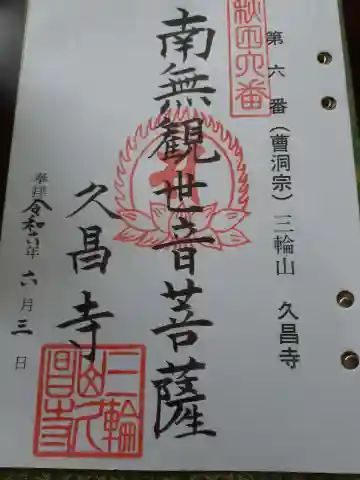 第六番(曹洞宗)三輪山 久昌寺
秩四六番
南無観世音菩薩
久昌寺
奉拝 令和六年 六月 三日
三輪山久昌寺